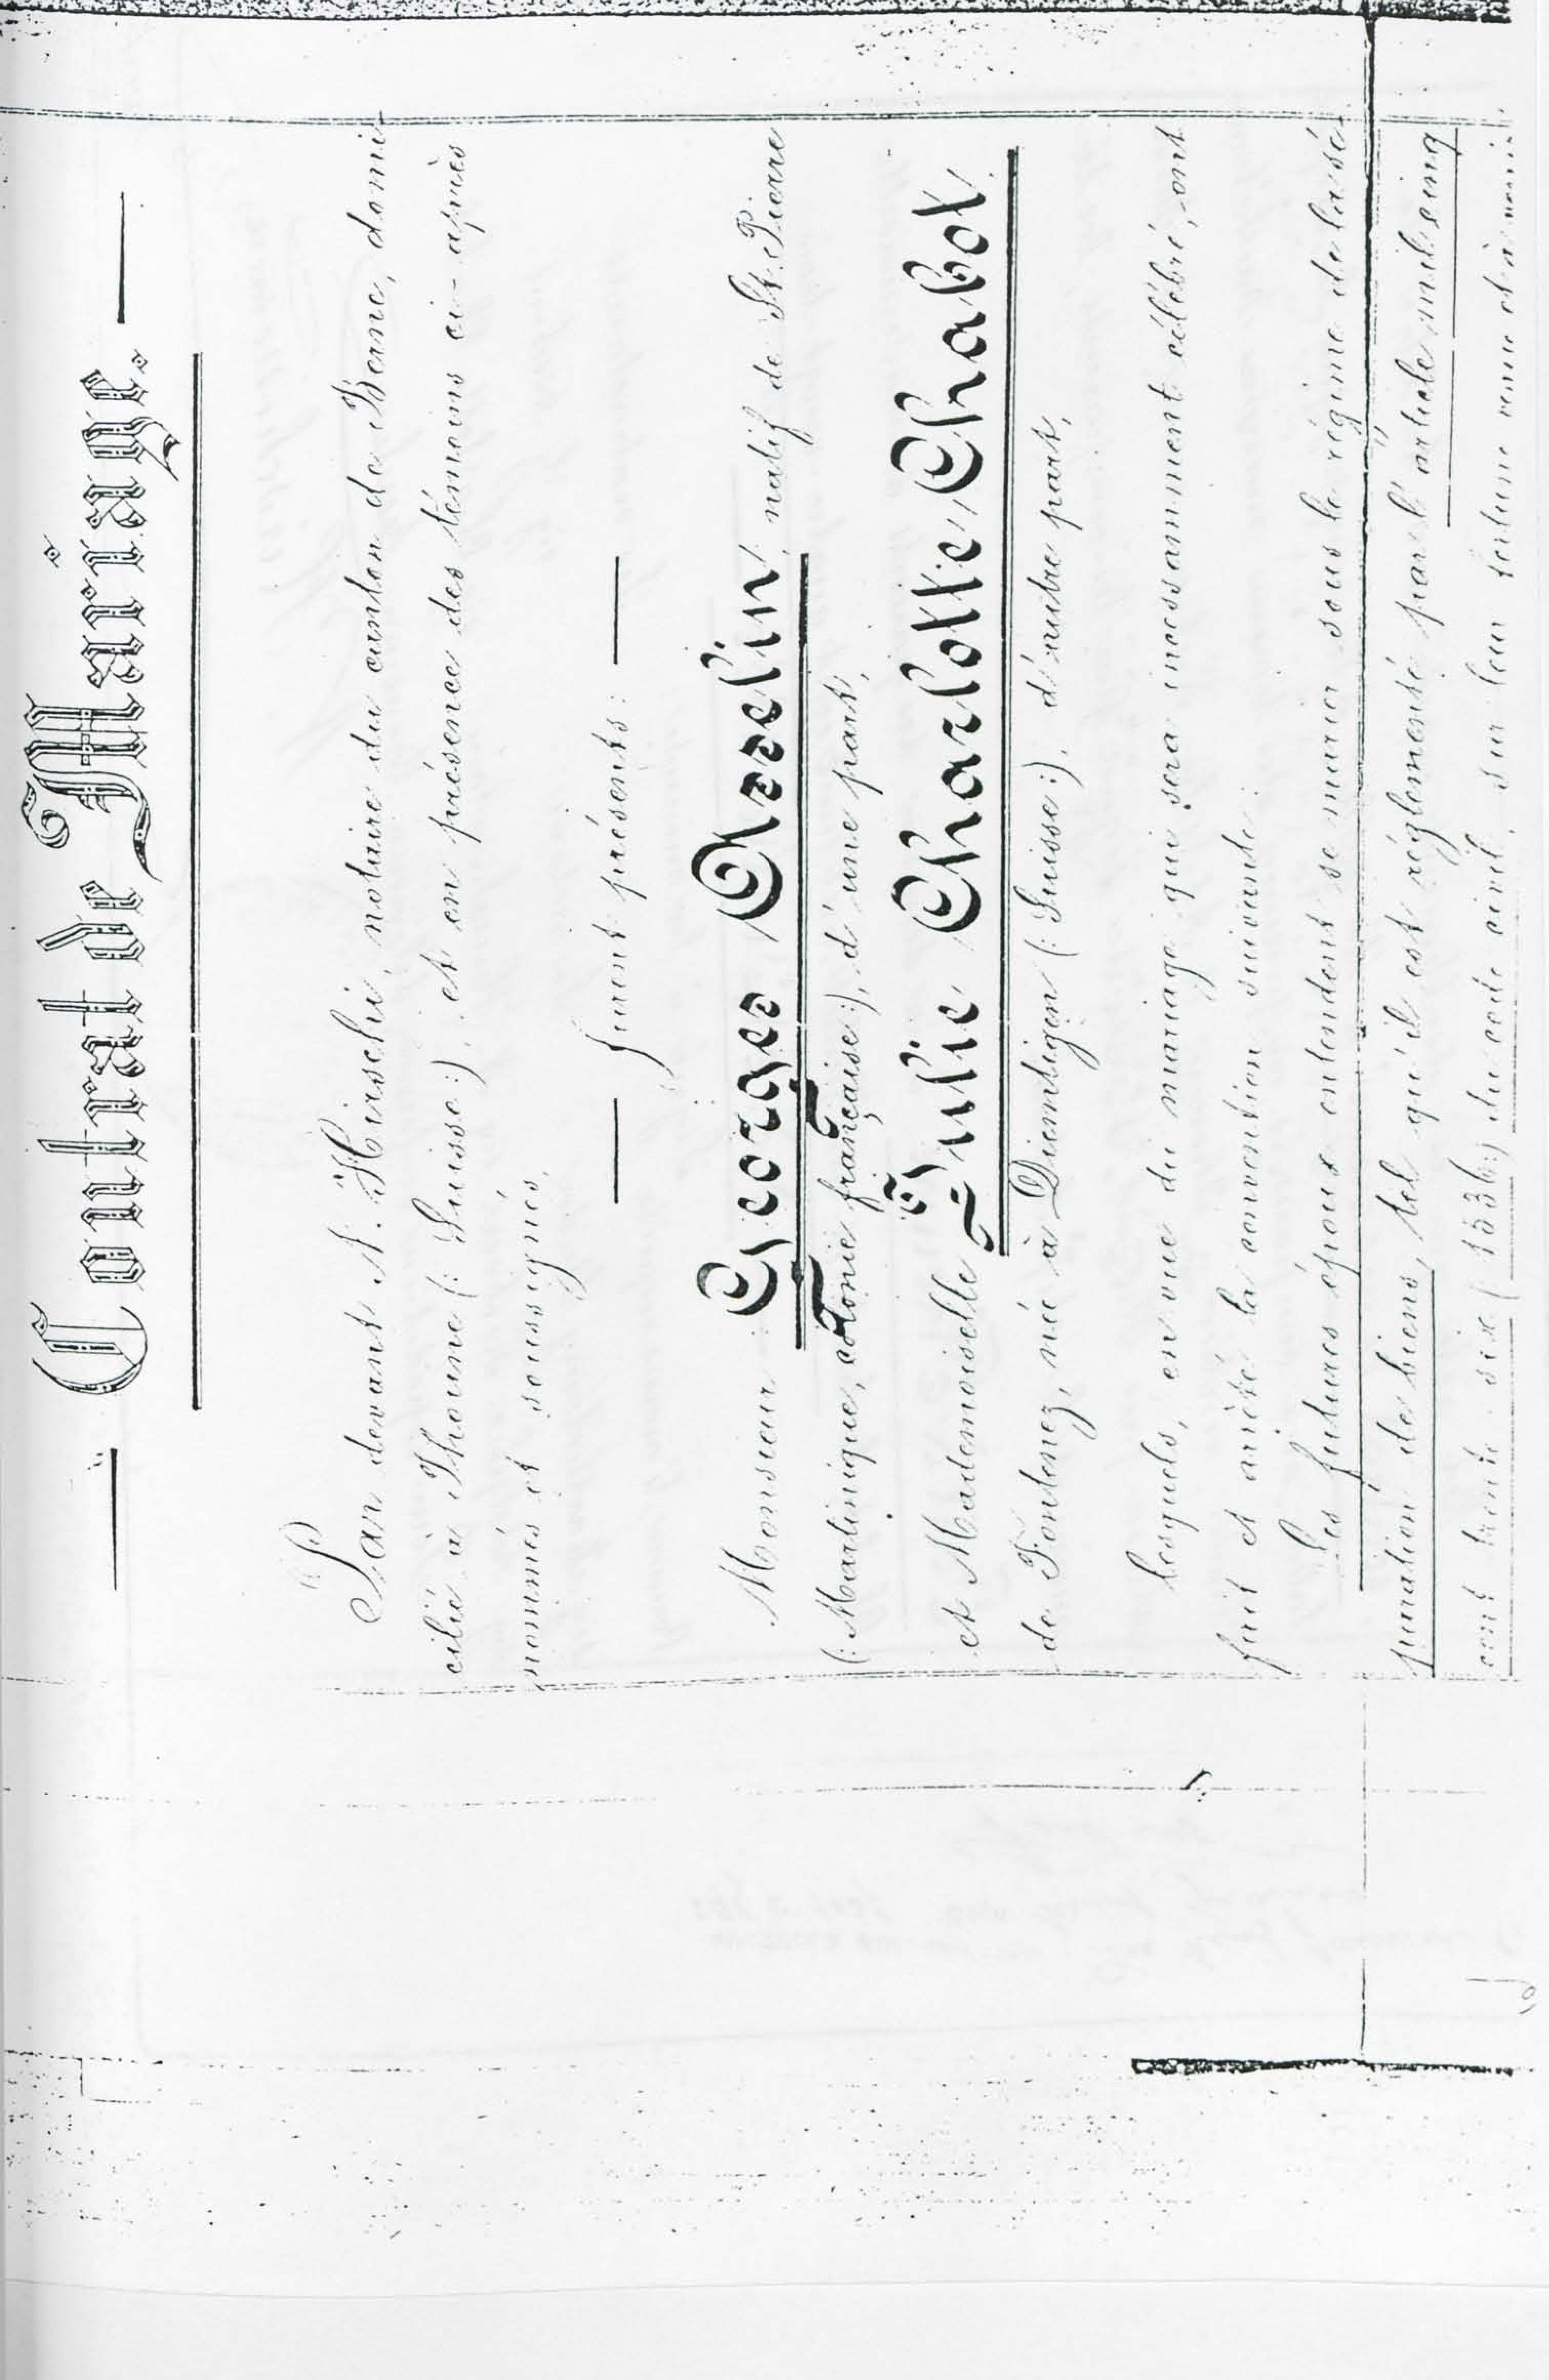 Contrat de Mariage.
Par devant A. Hirschi, notaire du canton de Berne, domi-
cilié à Thoune (: Suisse :), et en présence des témoins ci-après
nommés et soussignés,
furent présents:
Monsieur Georges Asselin, natif de St. Pierre
(: Martinique, colonie française :), d'une part,
et Mademoiselle Julie Charlotte Chabot,
de Fontenez, née à Diemtigen (: Suisse :), d'autre part,
lesquels, en vue du mariage qui sera incessamment célébré, ont
fait et arrêté la convention suivante:
Les futures époux entendent se marier sous le régime de la sé-
paration de biens, tel qu'il est réglementé par l'article mil cinq
cent trente-six (1536:) du code civil, sur leur fortune